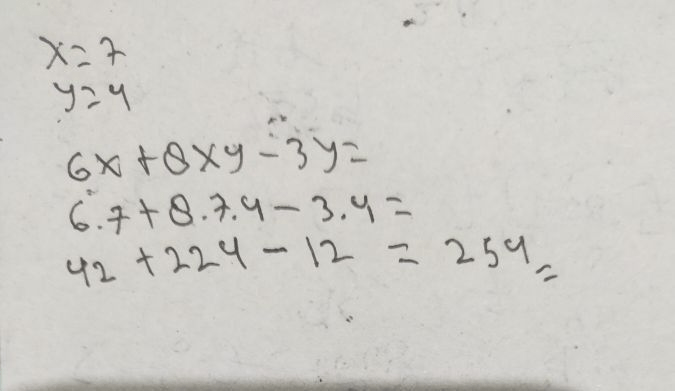 x=7
y=4
6x+8xy-3y=
6.7+8.7.4-3.4=
42+224-12 = 254